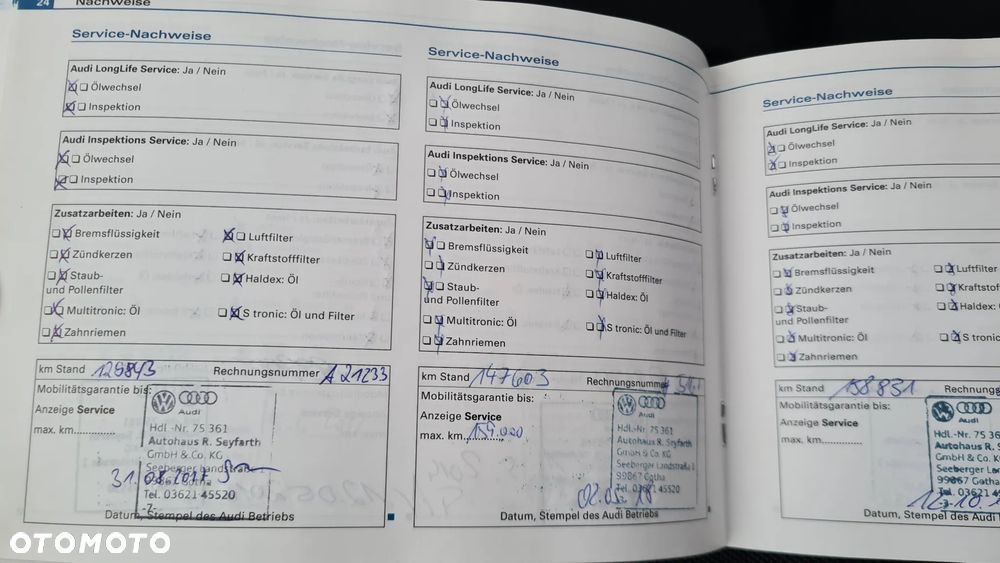 24 Nachweise
Service-Nachweise
Audi LongLife Service: Ja / Nein
Ölwechsel
Inspektion
Audi Inspektions Service: Ja / Nein
Ölwechsel
Inspektion
Zusatzarbeiten: Ja / Nein
Bremsflüssigkeit Luftfilter
Zündkerzen Kraftstofffilter
Staub- Haldex: Öl
und Pollenfilter
Multitronic: Öl S tronic: Öl und Filter
Zahnriemen
km Stand 129843 Rechnungsnummer A 21233
Mobilitätsgarantie bis:
Anzeige Service
max. km
Audi
Hdl.-Nr. 75 361
Autohaus R. Seyfarth
GmbH & Co. KG
Seeberger Landstraße
99867 Gotha
Tel. 03621 45520
-7-
31.08.2017
Datum, Stempel des Audi Betriebs
Service-Nachweise
Audi LongLife Service: Ja / Nein
Ölwechsel
Inspektion
Audi Inspektions Service: Ja / Nein
Ölwechsel
Inspektion
Zusatzarbeiten: Ja / Nein
Bremsflüssigkeit Luftfilter
Zündkerzen Kraftstofffilter
Staub- Haldex: Öl
und Pollenfilter
Multitronic: Öl S tronic: Öl und Filter
Zahnriemen
km Stand 147603 Rechnungsnummer
Mobilitätsgarantie bis:
Anzeige Service
max. km 154.000
Audi
Hdl.-Nr. 75 361
Autohaus R. Seyfarth
GmbH & Co. KG
Seeberger Landstraße 1
99867 Gotha
Tel. 03621 45520
-7-
Datum, Stempel des Audi Betriebs
Service-Nachweise
Audi LongLife Service: Ja / Nein
Ölwechsel
Inspektion
Audi Inspektions Service: Ja / Nein
Ölwechsel
Inspektion
Zusatzarbeiten: Ja / Nein
Bremsflüssigkeit Luftfilter
Zündkerzen Kraftstof
Staub- Haldex:
und Pollenfilter
Multitronic: Öl S tronic
Zahnriemen
km Stand 158831 Rechnung
Mobilitätsgarantie bis:
Anzeige Service
max. km
Audi
Hdl.-Nr. 75 361
Autohaus R. S
GmbH & Co. K
Seeberger La
99867 Gotha
Tel. 03621 4
-7-
12.10.1
Datum, Stempel des Audi
OTOMOTO